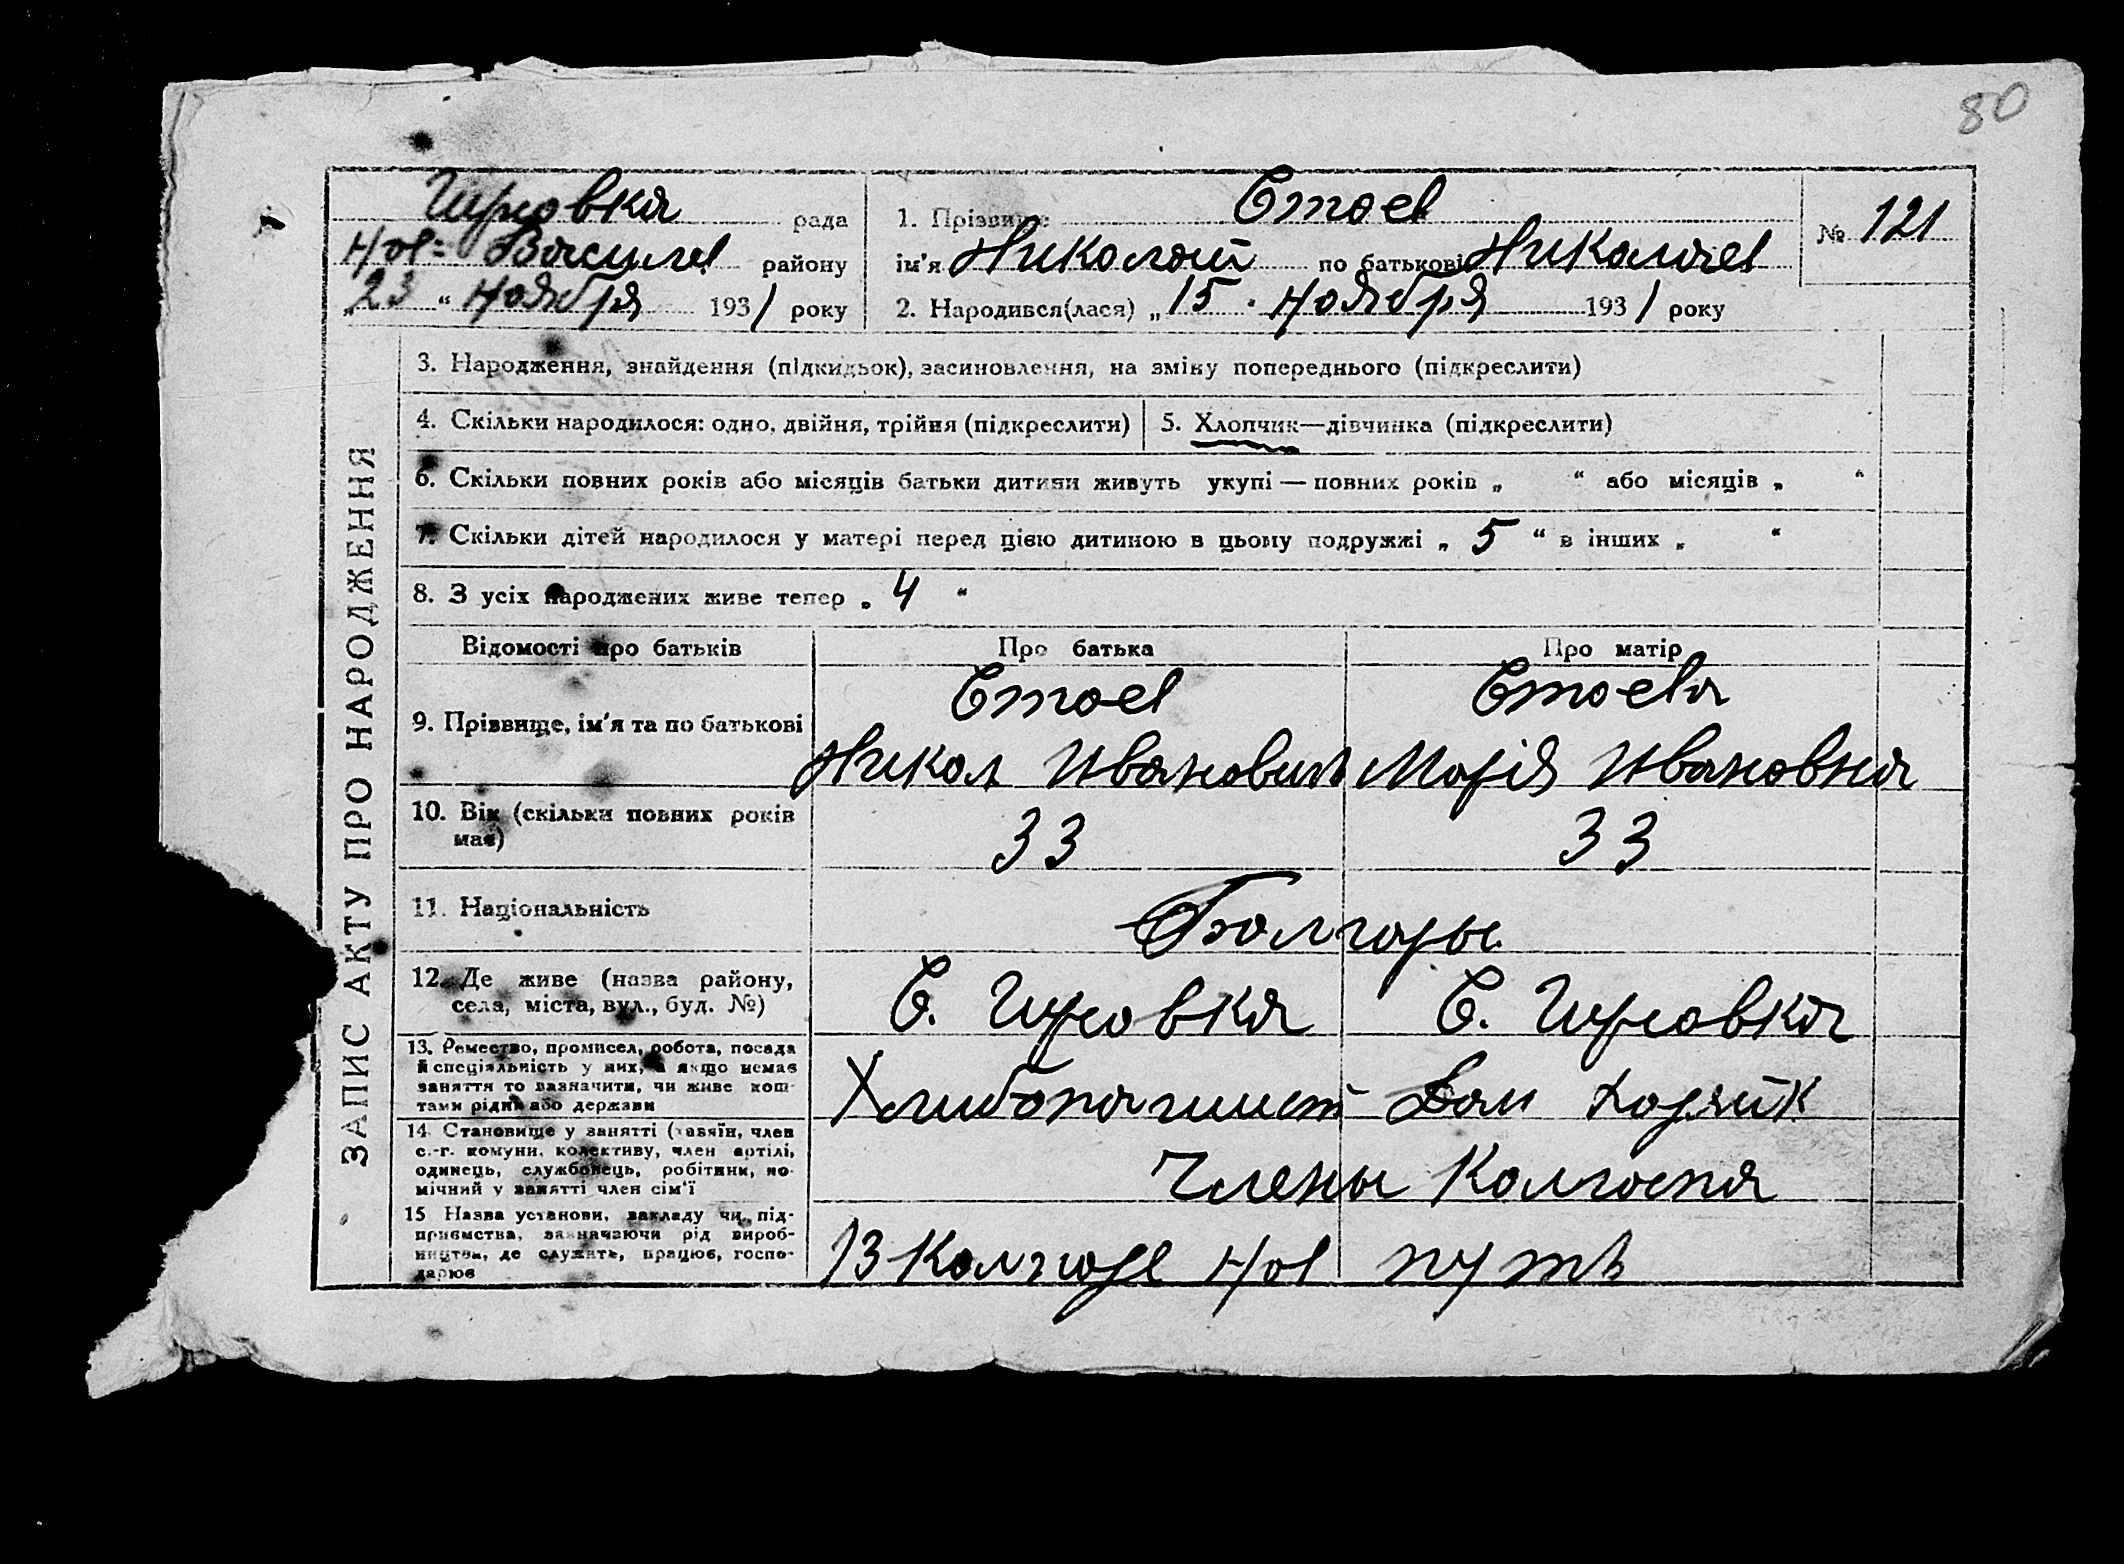 80
Гирсовка рада
Нов= Василев. району
„23“ Ноября 1931 року
1. Прізвище Стоев
ім'я Николай по батькові Николаев
2. Народився(лася) „15. Ноября 1931 року
№ 121
ЗАПИС АКТУ ПРО НАРОДЖЕННЯ
3. Народження, знайдення (підкидьок), засиновлення, на зміну попереднього (підкреслити)
4. Скільки народилося: одно, двійня, трійня (підкреслити)
5. Хлопчик—дівчинка (підкреслити)
6. Скільки повних років або місяців батьки дитини живуть укупі — повних років „ “ або місяців „ “
7. Скільки дітей народилося у матері перед цією дитиною в цьому подружжі „ 5 “ в інших „ “
8. З усіх народжених живе тепер „ 4 “
Відомості про батьків Про батька Про матір
9. Прізвище, ім'я та по батькові
Стоев
Никол Иванович
Стоева
Марія Ивановна
10. Вік (скільки повних років
має)
33 33
11. Національність Болгары
12. Де живе (назва району,
села, міста, вул., буд. №)
С. Гирсовка С. Гирсовка
13. Ремество, промисел, робота, посада
й спеціяльність у них, а якщо немає
заняття то вазначити, чи живе кош-
тами рідні або держави
Хлибопашист Дом Хозяйк
14. Становище у занятті (хазяїн, член
с.-г. комуни, колективу, член артілі,
одинець, службовець, робітник, по-
мічний у занятті член сім'ї
Члены Колгоспа
15 Назва установи, закладу чи під-
приємства, зазначаючи рід вироб-
ництва, де служить, працює, госпо-
дарює
В Колгозе Нов путь